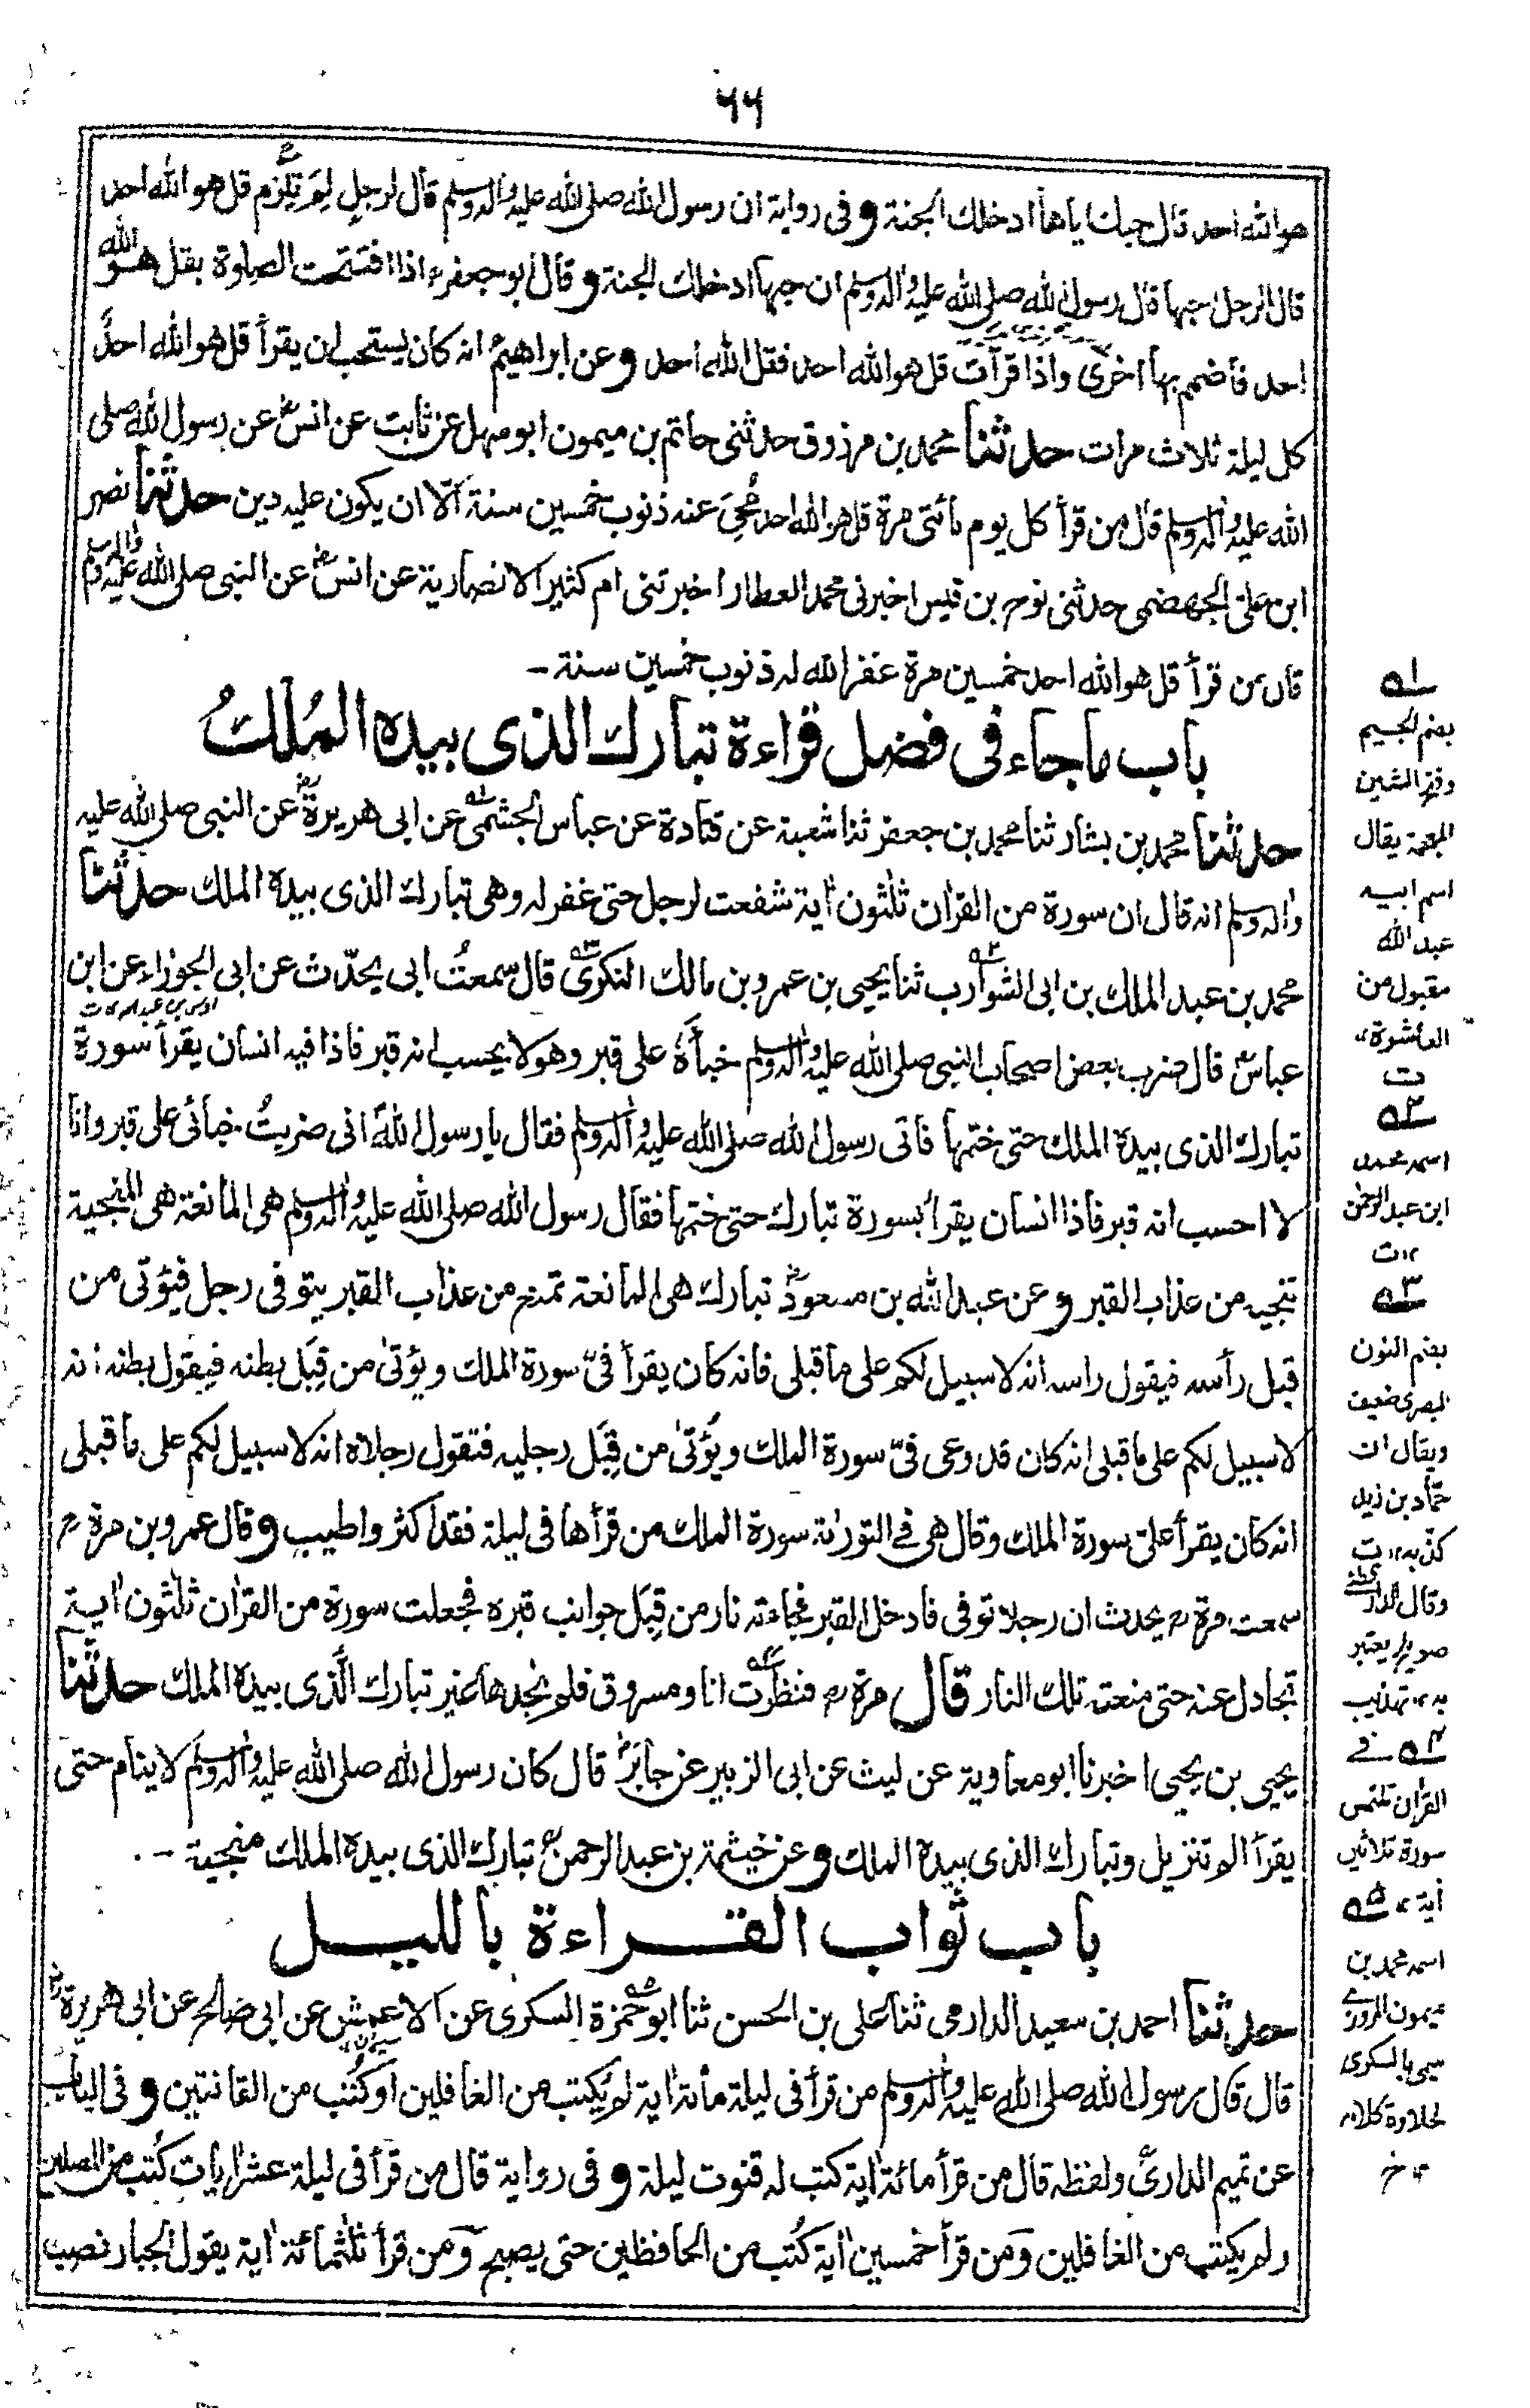 ٦٦
هو الله احد قال حبك اياها ادخلك الجنة وفى رواية ان رسول الله صلى الله عليه واله وسلم قال لرجل لم تلزم قل هو الله احد
قال الرجل احبها قال رسول الله صلى الله عليه واله وسلم ان حبها ادخلك الجنة وقال ابو جعفر اذا افتتحت الصلوة بقل هو الله
احد فاضمم بها اخرى واذا قرأت قل هو الله احد فقل الله احد وعن ابراهيم انه كان يستحب ان يقرأ قل هو الله احد
كل ليلة ثلاث مرات حدثنا محمد بن مرزوق حدثنى حاتم بن ميمون ابو سهل عن ثابت عن انس عن رسول الله صلى
الله عليه واله وسلم قال من قرأ كل يوم مائتى مرة قل هو الله احد مُحِىَ عنه ذنوب خمسين سنة الّا ان يكون عليه دين حدثنا نصر
ابن على الجهضمى حدثنى نوح بن قيس اخبرنى محمد العطار اخبرتنى ام كثير الانصارية عن انس عن النبى صلى الله عليه واله وسلم
قال من قرأ قل هو الله احد خمسين مرة غفر الله له ذنوب خمسين سنة -
باب ما جاء فى فضل قراءة تبارك الذى بيده المُلكُ
حدثنا محمد بن بشار ثنا محمد بن جعفر ثنا شعبة عن قتادة عن عباس الجشمى عن ابى هريرة عن النبى صلى الله عليه
واله وسلم انه قال ان سورة من القران ثلثون اية شفعت لرجل حتى غفر له وهى تبارك الذى بيده الملك حدثنا
محمد بن عبد الملك بن ابى الشوارب ثنا يحيى بن عمرو بن مالك النكرى قال سمعتُ ابى يحدّث عن ابى الجوزاء عن ابن
عباس قال ضرب بعض اصحاب النبى صلى الله عليه واله وسلم خباءه على قبر وهو لا يحسب انه قبر فاذا فيه انسان يقرأ سورة
تبارك الذى بيده الملك حتى ختمها فاتى رسول الله صلى الله عليه واله وسلم فقال يا رسول الله انى ضربتُ خبائى على قبر وانا
لا احسب انه قبر فاذا انسان يقرأ بسورة تبارك حتى ختمها فقال رسول الله صلى الله عليه واله وسلم هى المانعة هى المنجية
تنجيه من عذاب القبر وعن عبد الله بن مسعود تبارك هى المانعة تمنع من عذاب القبر يتوفى رجل فيؤتى من
قبل رأسه فيقول راسه انه لا سبيل لكم على ما قبلى فانه كان يقرأ فىّ سورة الملك ويؤتىٰ من قِبَل بطنه فيقول بطنه انه
لا سبيل لكم على ما قبلى انه كان قد وعى فىّ سورة الملك ويؤتىٰ من قِبَل رجليه فتقول رجلاه انه لا سبيل لكم على ما قبلى
انه كان يقرأ علىّ بسورة الملك وقال هى فى التورٰىة سورة الملك من قرأها فى ليلة فقد اكثر واطيب وقال عمرو بن مرة رح
سمعت مرة رح يحدث ان رجلا توفى فادخل القبر فجاءته نار من قِبَل جوانب قبره فجعلت سورة من القران ثلثون اية
تجادل عنه حتى منعته تلك النار قال مرة رح فنظرت انا ومسروق فلم نجدها غير تبارك الَّذى بيده الملك حدثنا
يحيى بن يحيى اخبرنا ابو معاوية عن ليث عن ابى الزبير عن جابر قال كان رسول الله صلى الله عليه واله وسلم لا ينام حتى
يقرأ الم تنزيل وتبارك الذى بيده الملك وعن خيثمة بن عبد الرحمن تبارك الذى بيده الملك منجية - .
باب ثواب القراءة بالليل
حدثنا احمد بن سعيد الدارمى ثنا على بن الحسن ثنا ابو حمزة السكرى عن الاعمش عن ابى صالح عن ابى هريرة
قال قال رسول الله صلى الله عليه واله وسلم من قرأ فى ليلة مائة اية لم يكتب من الغافلين او كُتب من القانتين وفى الباب
عن تميم الدارى ولفظه قال من قرأ مائة اية كتب له قنوت ليلة وفى رواية قال من قرأ فى ليلة عشر ايات كُتب من المصلين
ولم يكتب من الغافلين ومن قرأ خمسين اية كُتب من الحافظين حتى يصبح ومن قرأ ثلثمائة اية يقول الجبار نصب
ا
بضم الجيم
وفتح الشين
المعجمة يقال
اسم ابيه
عبد الله
مقبول من
العاشرة
ت
٢
اسمه محمد
ابن عبد الرحمن
ت
٣
بضم النون
البصرى ضعيف
ويقال ان
حمّاد بن زيد
كذّبه ت
وقال الدارقطنى
صويلح يعتبر
به تهذيب
٤ فى
القران تلتمس
سورة ثلاثين
اية ٥
اسمه محمد بن
ميمون المروزى
سمى بالسكرى
لحلاوة كلامه